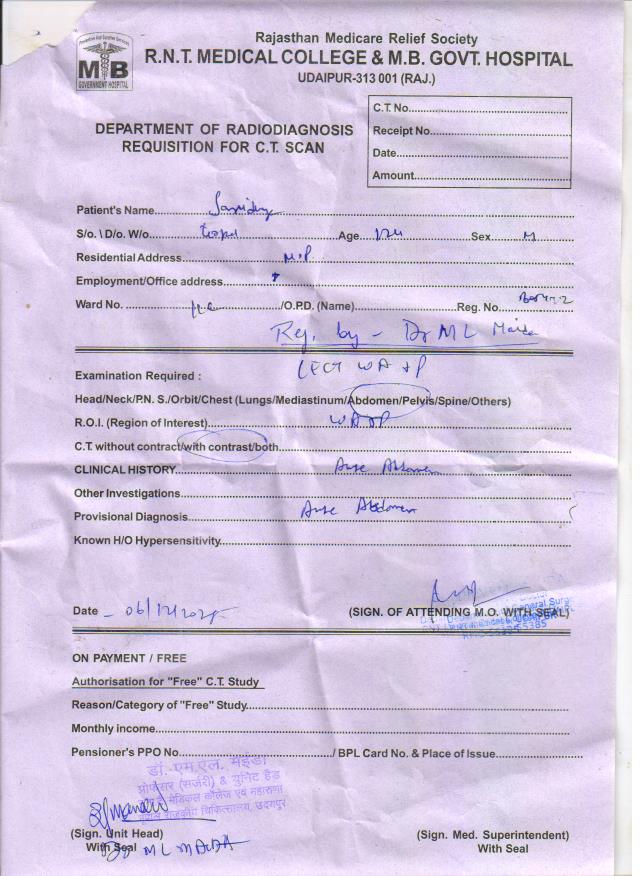 Rajasthan Medicare Relief Society
R.N.T. MEDICAL COLLEGE & M.B. GOVT. HOSPITAL
UDAIPUR-313 001 (RAJ.)
MB
GOVERNMENT HOSPITAL
C.T. No.
Receipt No.
Date
Amount
DEPARTMENT OF RADIODIAGNOSIS
REQUISITION FOR C.T. SCAN
Patient's Name
S/o. \ D/o. W/o. Age Sex M
Residential Address M.P
Employment/Office address
Ward No. /O.P.D. (Name) Reg. No.
by - Dr ML
Examination Required : CECT WA + P
Head/Neck/P.N. S./Orbit/Chest (Lungs/Mediastinum/Abdomen/Pelvis/Spine/Others)
R.O.I. (Region of Interest) WA + P
C.T. without contract/with contrast/both
CLINICAL HISTORY Abdomen
Other Investigations
Provisional Diagnosis Abdomen
Known H/O Hypersensitivity
Date - 06/12/2025
(SIGN. OF ATTENDING M.O. WITH SEAL)
ON PAYMENT / FREE
Authorisation for "Free" C.T. Study
Reason/Category of "Free" Study
Monthly income
Pensioner's PPO No. / BPL Card No. & Place of Issue
डॉ. एम.एल. मईडा
प्रोफेसर (सर्जरी) & युनिट हैड
मेडिकल कॉलेज एवं महाराणा
भूपाल राजकीय चिकित्सालय, उदयपुर
(Sign. Unit Head) (Sign. Med. Superintendent)
With Seal Dr ML MAIDA With Seal